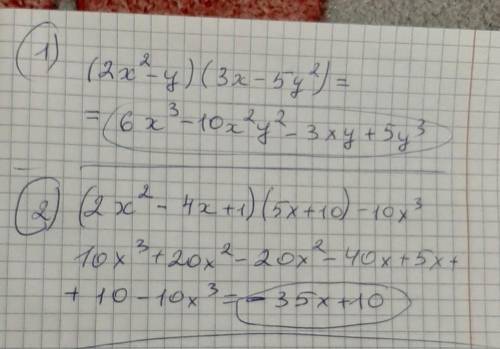 1)
(2x²-y)(3x-5y²)=
= 6x³-10x²y²-3xy+5y³
2 (2x²-4x+1)(5x+10)-10x³
10x³+20x²-20x²-40x+5x+
+10-10x³=-35x+10